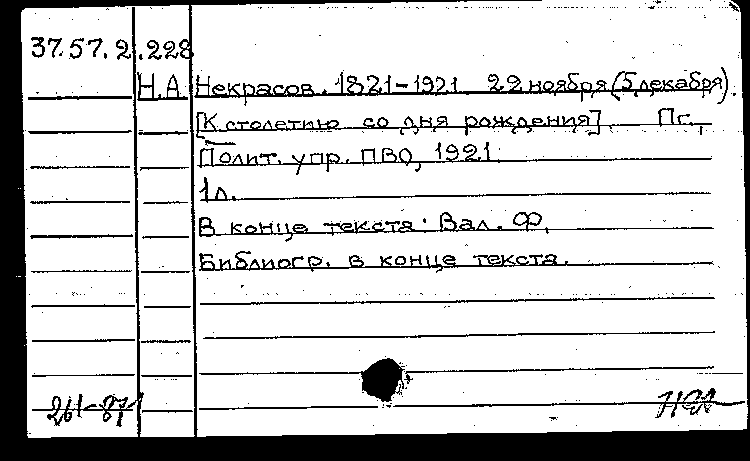 37.57.2.228
Н.А. Некрасов. 1821-1921 22 ноября (5 декабря).
[К столетию со дня рождения]. Пг.,
Полит. упр. ПВО, 1921.
1л.
В конце текста: Вал. Ф.
Библиогр. в конце текста.
261-871